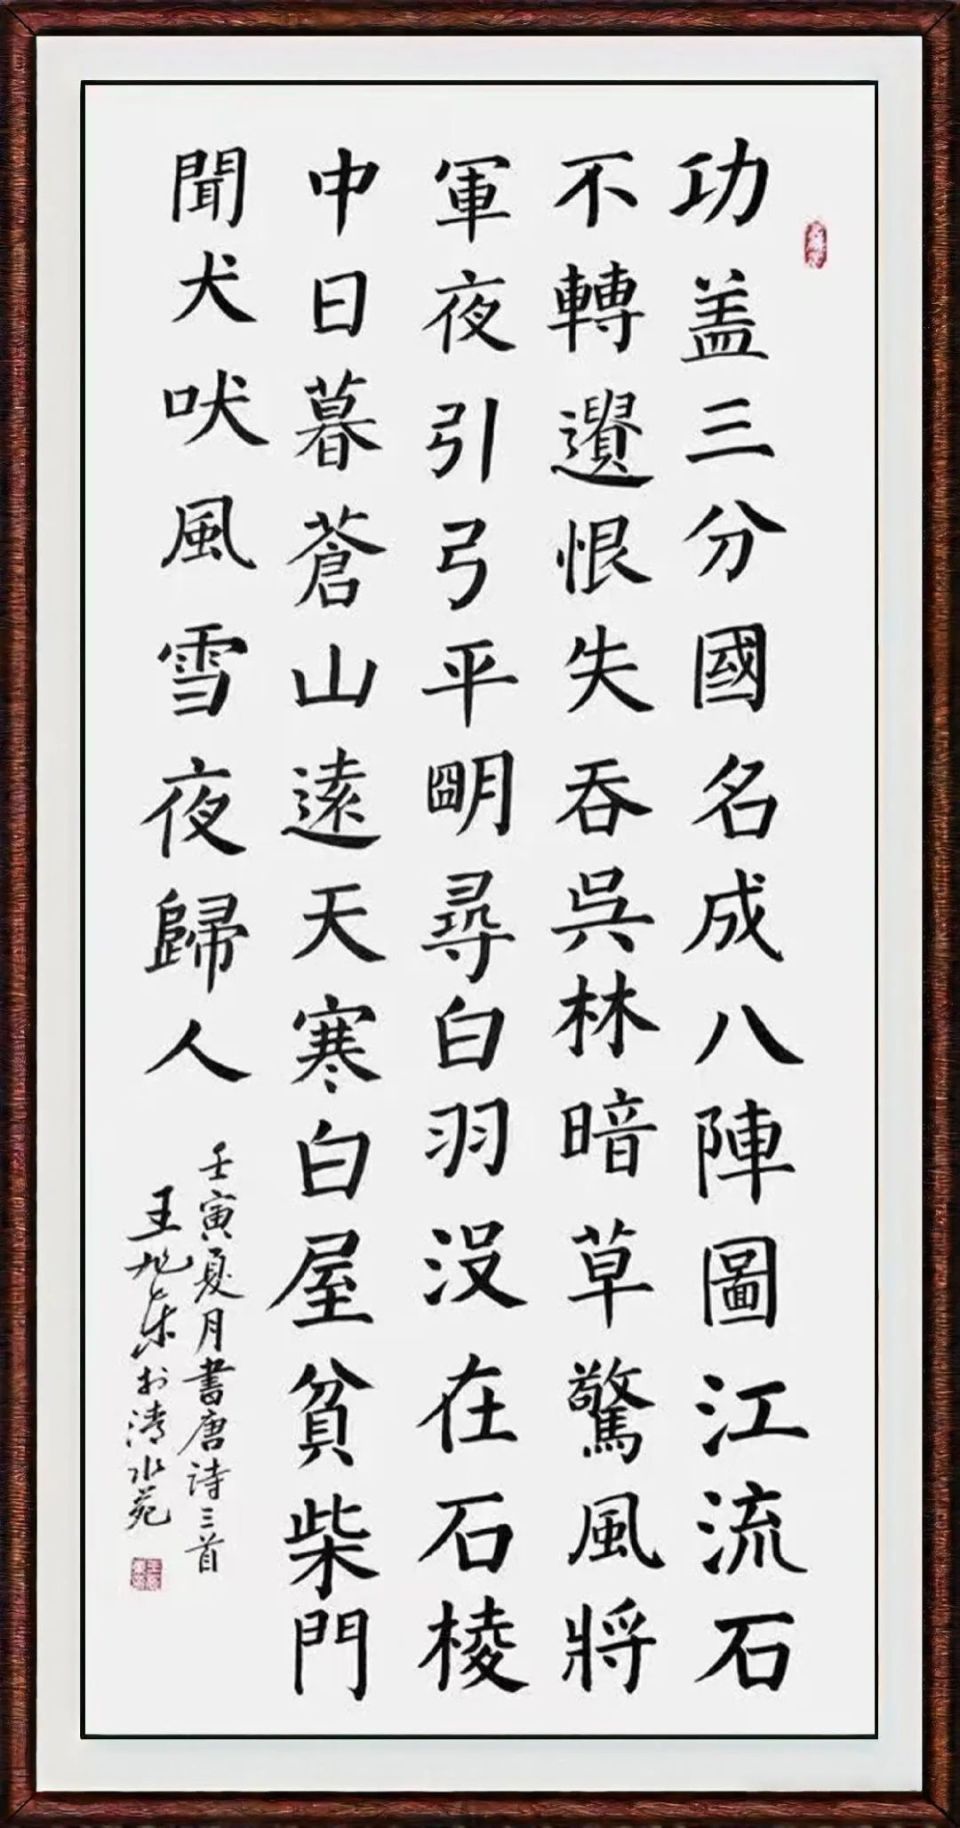 功盖三分國名成八陣圖江流石
不轉遺恨失吞吳林暗草驚風將
軍夜引弓平明尋白羽没在石棱
中日暮蒼山遠天寒白屋貧柴門
聞犬吠風雪夜歸人
壬寅夏月書唐詩三首
王旭东於清水苑